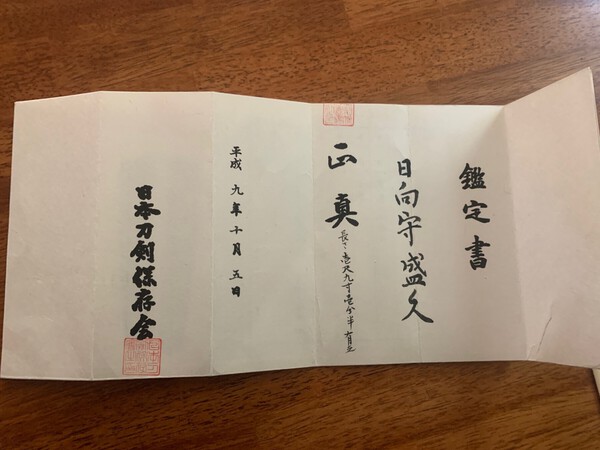 鑑定書
日向守盛久
正真
長さ壱尺九寸壱分半有之
平成九年十月五日
日本刀剣保存会